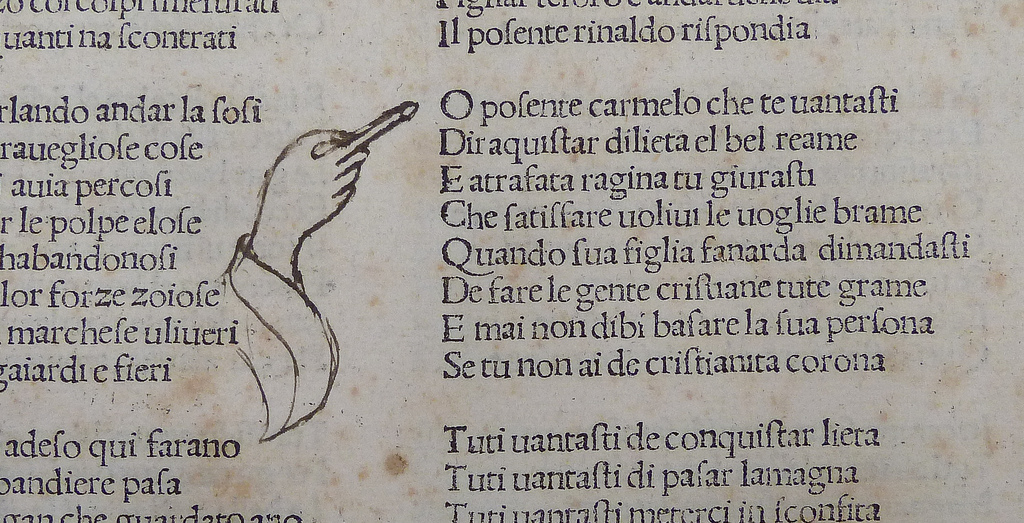 uanti na ſcontrati
rlando andar la ſoſi
raueglioſe coſe
auia percoſi
r le polpe eloſe
habandonoſi
lor forze zoioſe
marcheſe uliueri
gaiardi e fieri
adeſo qui farano
bandiere paſa
Il poſente rinaldo riſpondia
O poſente carmelo che te uantaſti
Dir aquiſtar dilieta el bel reame
E atrafata ragina tu giuraſti
Che ſatiſfare uoliui le uoglie brame
Quando ſua figlia fanarda dimandaſti
De fare le gente criſtiane tute grame
E mai non dibi baſare la ſua perſona
Se tu non ai de criſtianita corona
Tuti uantaſti de conquiſtar lieta
Tuti uantaſti di paſar lamagna
Tuti uantaſti meterci in ſconfita